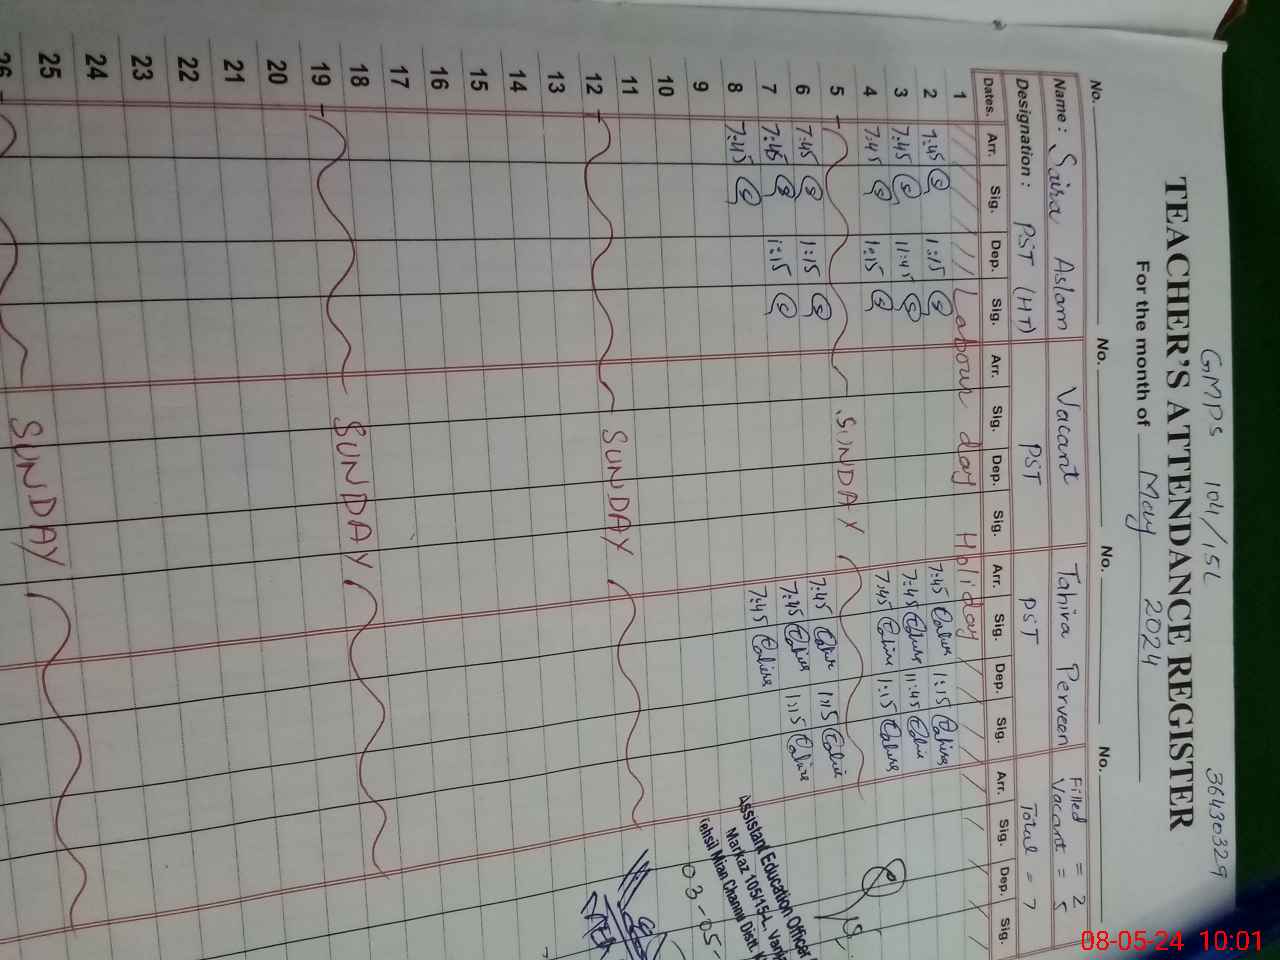 GMPS 104/15L 36430329
TEACHER'S ATTENDANCE REGISTER
For the month of May 2024
No. No. No. No.
Name: Saira Aslam Vacant Tahira Perveen Filled = 2
Vacant = 5
Designation: PST (HT) PST PST Total = 7
Dates. Arr. Sig. Dep. Sig. Arr. Sig. Dep. Sig. Arr. Sig. Dep. Sig. Arr. Sig. Dep. Sig.
1 Labour day Holiday
2 7:45 1:15 7:45 1:15
3 7:45 11:45 7:45 11:45
4 7:45 1:15 7:45 1:15
5 SUNDAY
6 7:45 1:15 7:45 1:15
7 7:45 1:15 7:45 1:15
8 7:45 7:45
9
10
11
12 SUNDAY
13
14
15
16
17
18
19 SUNDAY
20
21
22
23
24
25
26 SUNDAY
Assistant Education Officer
Markaz 105/15-L,
Tehsil Mian Channu Distt.
03-05-
08-05-24 10:01